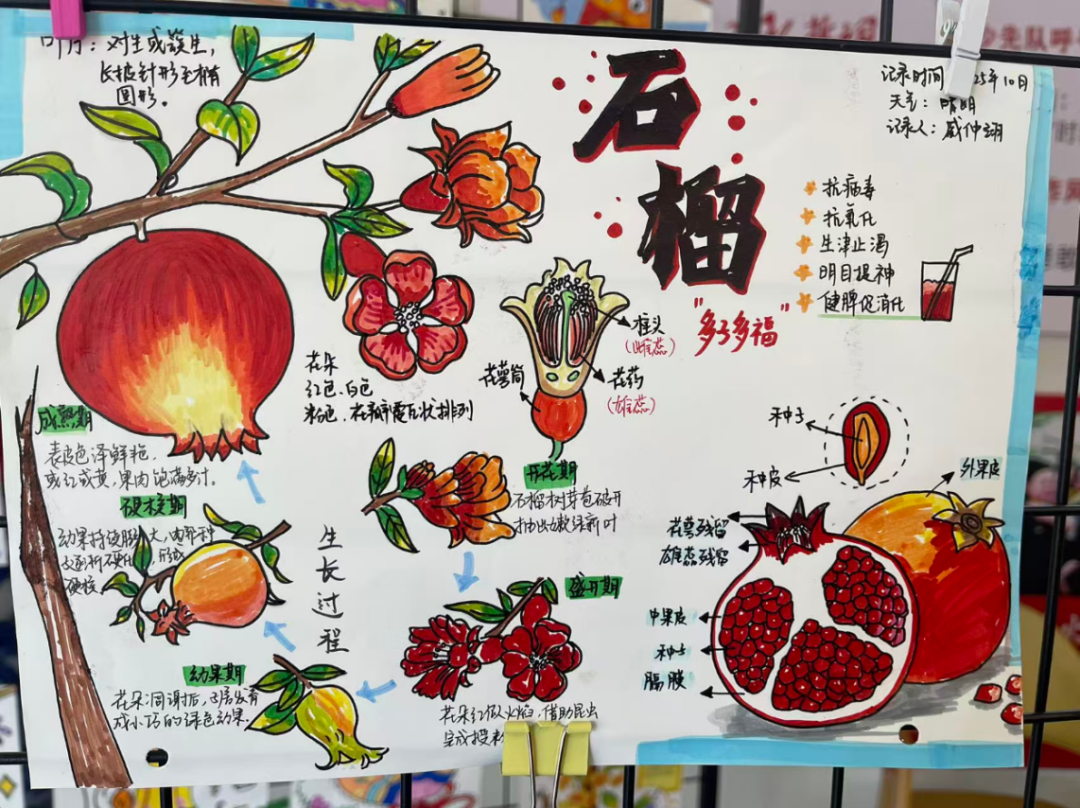 叶片：对生或簇生，
长披针形至稍
圆形。
石
榴
"多子多福"
记录时间 25年10月
天气：晴朗
记录人：戚仲翊
抗病毒
抗氧化
生津止渴
明目提神
健脾促消化
花朵
红色、白色
粉色，花瓣覆瓦状排列
柱头
(雌蕊)
花萼筒
花药
(雄蕊)
成熟期
表皮色泽鲜艳，
或红或黄，果肉饱满多汁。
硬核期
幼果持续膨大，内部种
皮逐渐硬化，形成
硬核
幼果期
花朵凋谢后，子房发育
成小巧的绿色幼果。
生长过程
开花期
石榴树芽苞破开
抽出嫩绿新叶
盛开期
花朵红似火焰，借助昆虫
完成授粉
种子
种皮
外果皮
花萼残留
雄蕊残留
中果皮
种子
隔膜
少先队呼